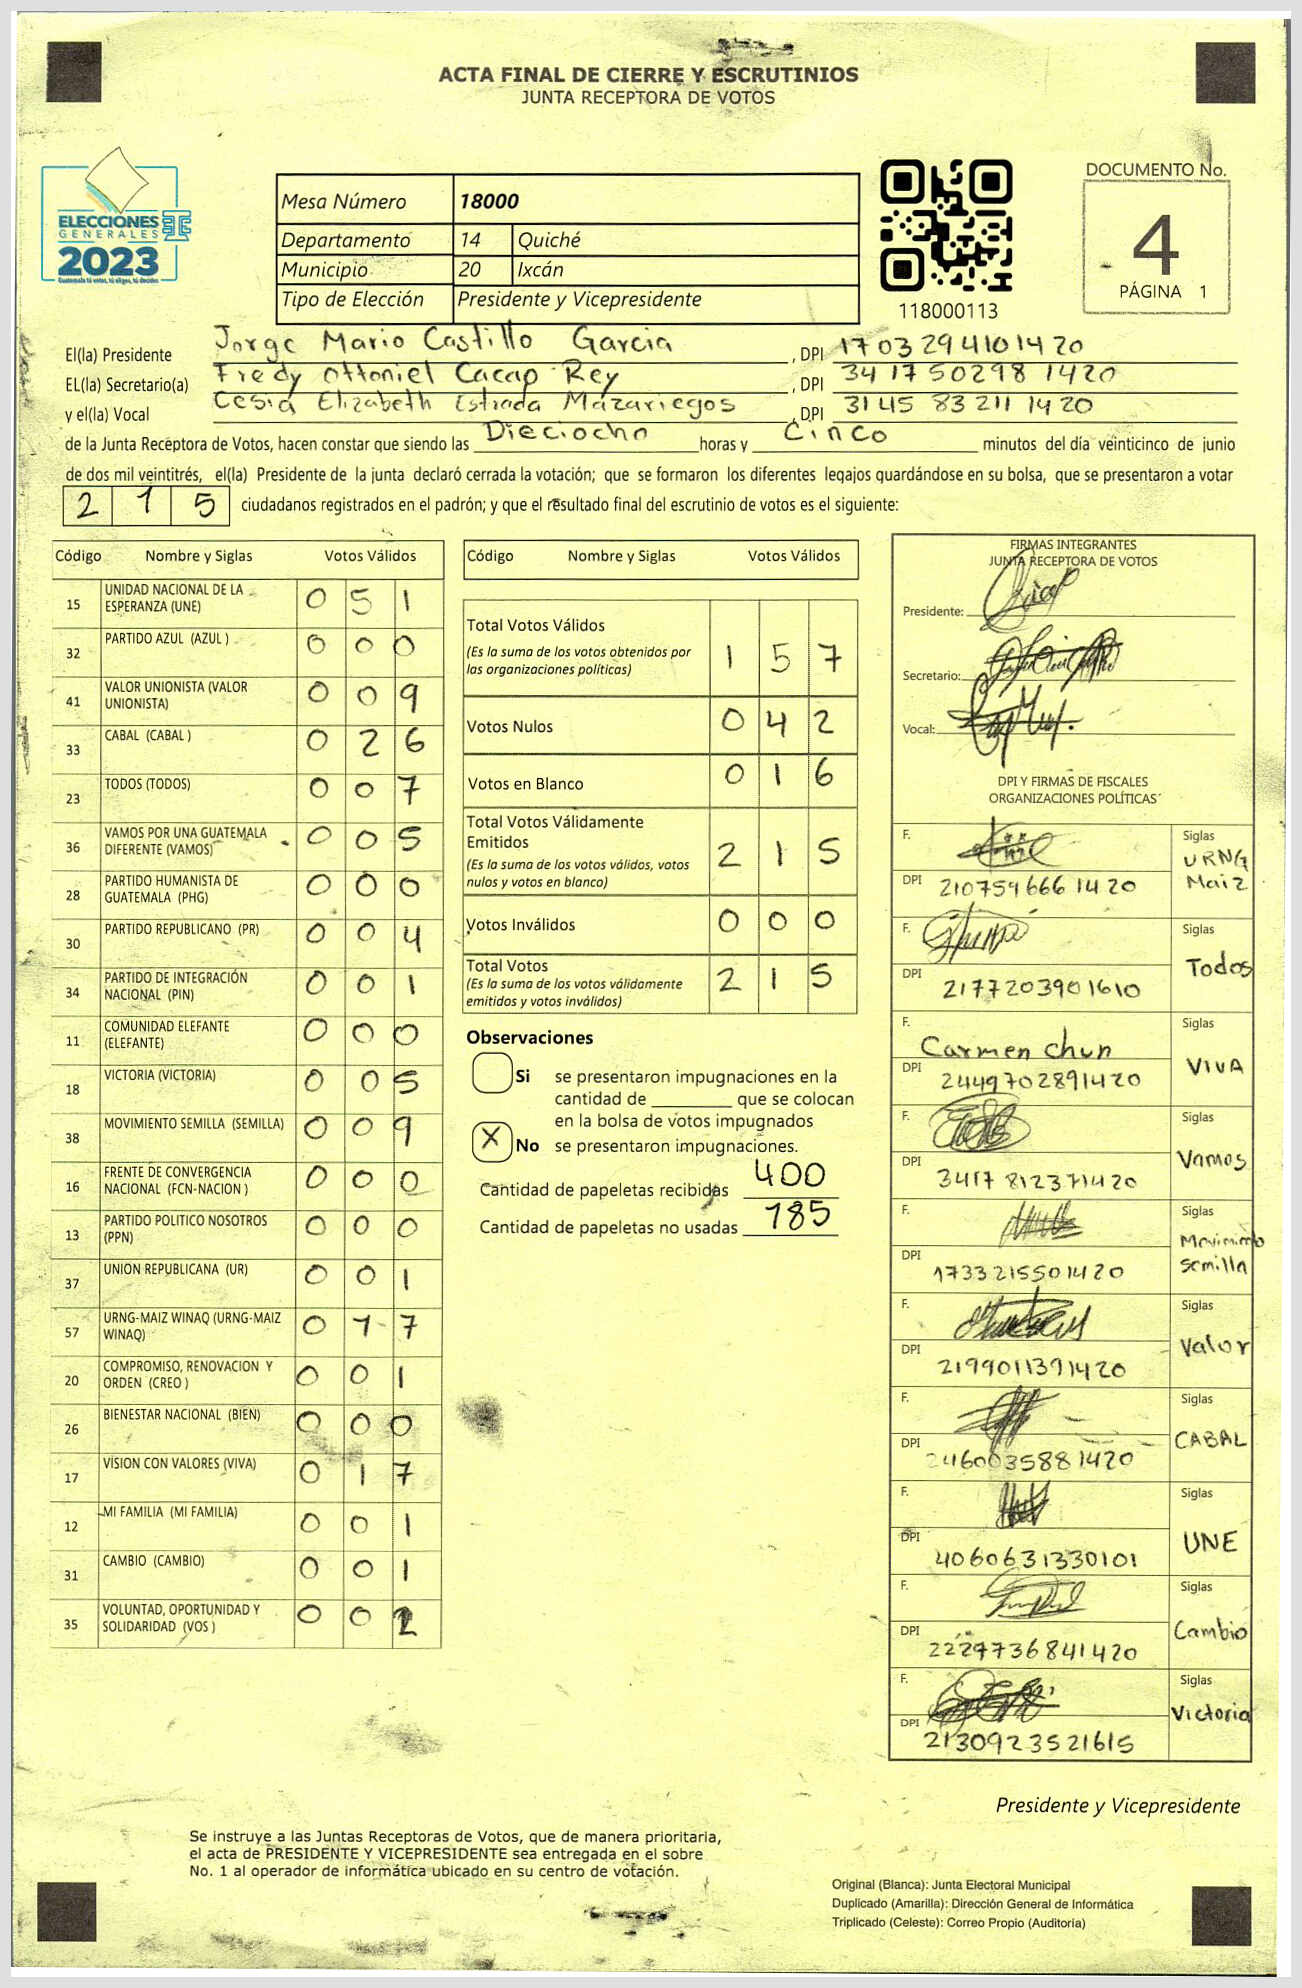 ACTA FINAL DE CIERRE Y ESCRUTINIOS
JUNTA RECEPTORA DE VOTOS
ELECCIONES
GENERALES
2023
Guatemala tú votas, tú eliges, tú decides
Mesa Número 18000
Departamento 14 Quiché
Municipio 20 Ixcán
Tipo de Elección Presidente y Vicepresidente
118000113
DOCUMENTO No.
4
PÁGINA 1
El(la) Presidente Jorge Mario Castillo Garcia , DPI 1703294101420
EL(la) Secretario(a) Fredy Ottoniel Cacao Rey , DPI 3417502981420
y el(la) Vocal Cesia Elizabeth Estrada Mazariegos , DPI 3145832111420
de la Junta Receptora de Votos, hacen constar que siendo las Dieciocho horas y Cinco minutos del día veinticinco de junio
de dos mil veintitrés, el(la) Presidente de la junta declaró cerrada la votación; que se formaron los diferentes legajos guardándose en su bolsa, que se presentaron a votar
215 ciudadanos registrados en el padrón; y que el resultado final del escrutinio de votos es el siguiente:
Código Nombre y Siglas Votos Válidos
15 UNIDAD NACIONAL DE LA ESPERANZA (UNE) 0 5 1
32 PARTIDO AZUL (AZUL ) 0 0 0
41 VALOR UNIONISTA (VALOR UNIONISTA) 0 0 9
33 CABAL (CABAL ) 0 2 6
23 TODOS (TODOS) 0 0 7
36 VAMOS POR UNA GUATEMALA DIFERENTE (VAMOS) 0 0 5
28 PARTIDO HUMANISTA DE GUATEMALA (PHG) 0 0 0
30 PARTIDO REPUBLICANO (PR) 0 0 4
34 PARTIDO DE INTEGRACIÓN NACIONAL (PIN) 0 0 1
11 COMUNIDAD ELEFANTE (ELEFANTE) 0 0 0
18 VICTORIA (VICTORIA) 0 0 5
38 MOVIMIENTO SEMILLA (SEMILLA) 0 0 9
16 FRENTE DE CONVERGENCIA NACIONAL (FCN-NACION ) 0 0 0
13 PARTIDO POLITICO NOSOTROS (PPN) 0 0 0
37 UNION REPUBLICANA (UR) 0 0 1
57 URNG-MAIZ WINAQ (URNG-MAIZ WINAQ) 0 1 7
20 COMPROMISO, RENOVACION Y ORDEN (CREO ) 0 0 1
26 BIENESTAR NACIONAL (BIEN) 0 0 0
17 VISION CON VALORES (VIVA) 0 1 7
12 MI FAMILIA (MI FAMILIA) 0 0 1
31 CAMBIO (CAMBIO) 0 0 1
35 VOLUNTAD, OPORTUNIDAD Y SOLIDARIDAD (VOS ) 0 0 2
Código Nombre y Siglas Votos Válidos
Total Votos Válidos
(Es la suma de los votos obtenidos por las organizaciones políticas) 1 5 7
Votos Nulos 0 4 2
Votos en Blanco 0 1 6
Total Votos Válidamente Emitidos
(Es la suma de los votos válidos, votos nulos y votos en blanco) 2 1 5
Votos Inválidos 0 0 0
Total Votos
(Es la suma de los votos válidamente emitidos y votos inválidos) 2 1 5
Observaciones
Si se presentaron impugnaciones en la
cantidad de ________ que se colocan
en la bolsa de votos impugnados
X No se presentaron impugnaciones.
Cantidad de papeletas recibidas 400
Cantidad de papeletas no usadas 185
FIRMAS INTEGRANTES
JUNTA RECEPTORA DE VOTOS
Presidente:
Secretario:
Vocal:
DPI Y FIRMAS DE FISCALES
ORGANIZACIONES POLÍTICAS
F. Siglas URNG Maiz
DPI 2107596661420
F. Siglas Todos
DPI 2177203901610
F. Carmen Chun Siglas VIVA
DPI 2449702891420
F. Siglas Vamos
DPI 3417812371420
F. Siglas Movimiento Semilla
DPI 1733215501420
F. Siglas Valor
DPI 2199011391420
F. Siglas CABAL
DPI 2460035881420
F. Siglas UNE
DPI 4060631330101
F. Siglas Cambio
DPI 2227736841420
F. Siglas Victoria
DPI 2130923521615
Presidente y Vicepresidente
Se instruye a las Juntas Receptoras de Votos, que de manera prioritaria,
el acta de PRESIDENTE Y VICEPRESIDENTE sea entregada en el sobre
No. 1 al operador de informática ubicado en su centro de votación.
Original (Blanca): Junta Electoral Municipal
Duplicado (Amarilla): Dirección General de Informática
Triplicado (Celeste): Correo Propio (Auditoría)